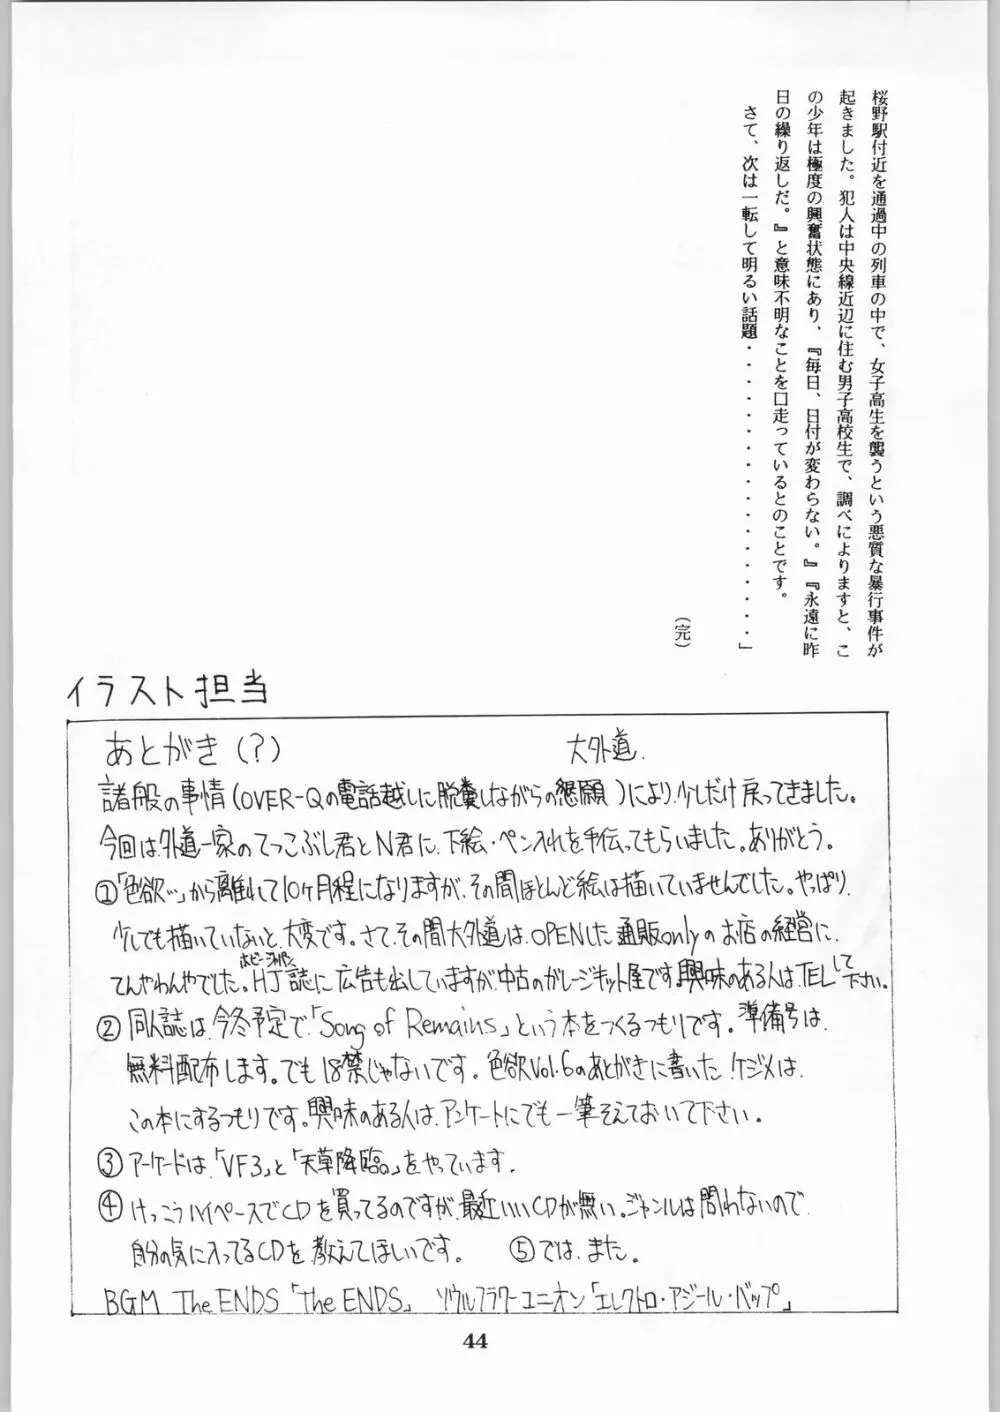 桜野駅付近を通過中の列車の中で、女子高生を襲うという悪質な暴行事件が
起きました。犯人は中央線近辺に住む男子高校生で、調べによりますと、こ
の少年は極度の興奮状態にあり、『毎日、日付が変わらない。』『永遠に昨
日の繰り返しだ。』と意味不明なことを口走っているとのことです。
さて、次は一転して明るい話題・・・・・・・・・・・・・・・・・・・」
(完)
イラスト担当
あとがき(?) 大外道.
諸般の事情(OVER-Qの電話越しに脱糞しながらの懇願)により、少しだけ戻ってきました。
今回は、外道一家のてっこぶし君とN君に、下絵・ペン入れを手伝ってもらいました。ありがとう。
①「色欲…」から離れて10ヶ月程になりますが、その間ほとんど絵は描いていませんでした。やっぱり、
少しでも描いていないと、大変です。さて、その間大外道は、OPENした通販onlyのお店の経営に、
てんやわんやでした。HJ誌に広告も出していますが、中古のガレージキット屋です。興味のある人は、TELして下さい。
ホビージャパン
②同人誌は、今冬予定で、「Song of Remains」という本をつくるつもりです。準備号は、
無料配布します。でも18禁じゃないです。色欲Vol.6のあとがきに書いた、ケジメは、
この本にするつもりです。興味のある人は、アンケートにでも一筆そえておいて下さい。
③アーケードは、「VF3」と「天草降臨。」をやっています.
④けっこうハイペースでCDを買ってるのですが、最近いいCDが無い。ジャンルは問わないので、
自分の気に入ってるCDを、教えてほしいです。 ⑤では、また。
BGM The ENDS「The ENDS」 ソウルフラワーユニオン「エレクトロ・アジール・バップ」
44